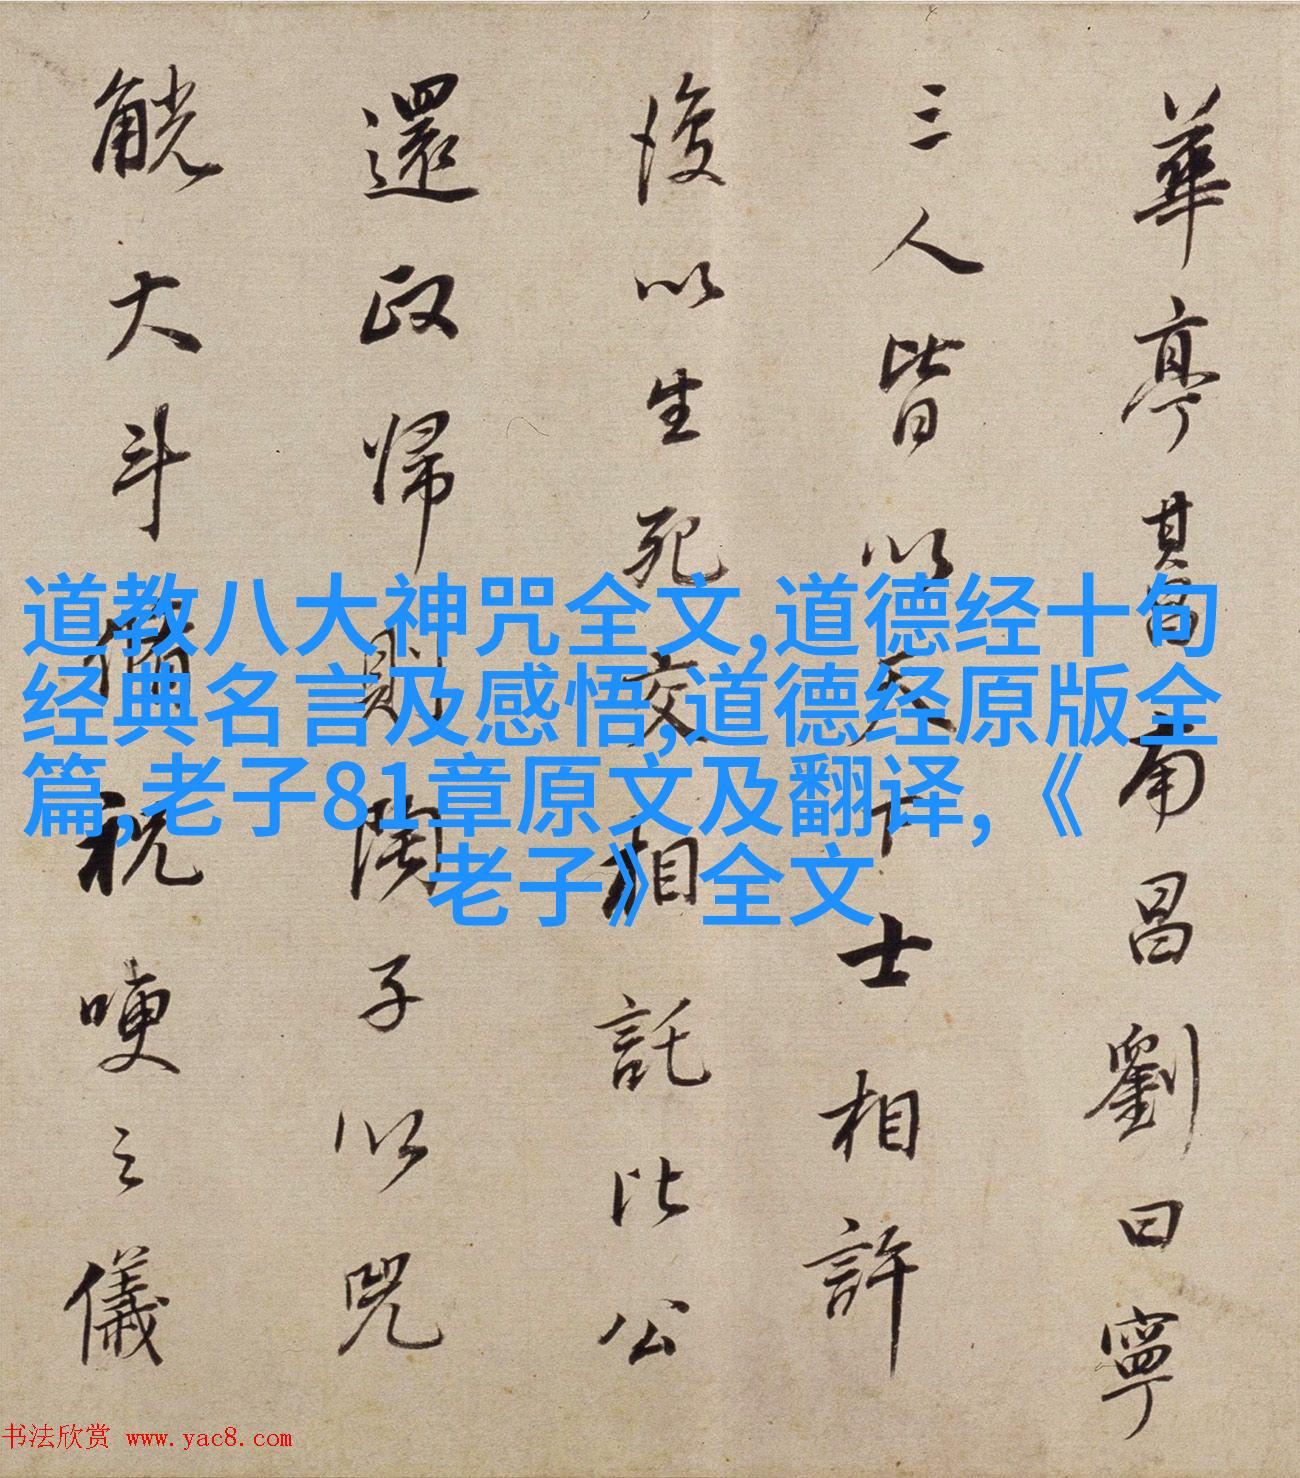 華亭其昌南昌劉曰寧
三人皆以天下士相許
後以生死交相託比公
還政歸則陶子以兕
觥大斗備祝哽之儀
道教八大神咒全文,道德经十句
经典名言及感悟,道德经原版全
篇,老子81章原文及翻译,《
老子》全文
书法欣赏 www.yac8.com